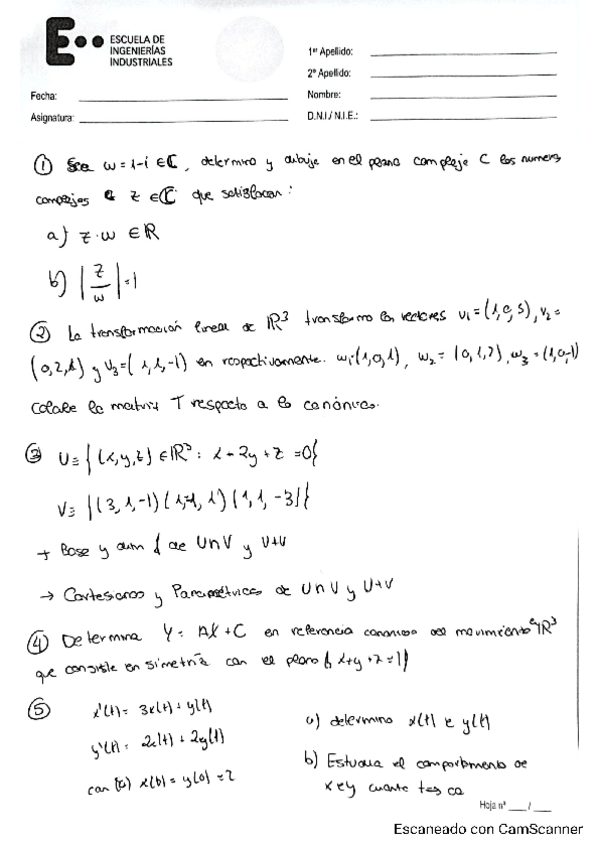 E••
ESCUELA DE
INGENIERÍAS
INDUSTRIALES
1er Apellido:
2º Apellido:
Fecha:
Nombre:
Asignatura:
D.N.I / N.I.E.:
① Sea w = 1-i ∈ ℂ, determina y dibuje en el plano complejo C los numeros
complejos z ∈ ℂ que satisfacan:
a) z·w ∈ ℝ
b) |z/w| = 1
② La transformación lineal de ℝ³ transforma los vectores v₁=(1,0,5), v₂=
(0,2,1) y v₃=(1,1,-1) en respectivamente. w₁(1,0,1), w₂=(0,1,2), w₃=(1,0,-1)
Calcule la matriz T respecto a la canónica.
③ U≡{(x,y,z)∈ℝ³: x-2y+z=0}
V≡{(3,1,-1)(1,-1,1)(1,1,-3)}
+ Base y dim de U∩V y U+V
→ Cartesianas y Paramétricas de U∩V y U+V
④ Determina Y = AX+C en referencia canonica del movimiento ℝ³
que consiste en simetría con el plano x+y+z=1
⑤ x'(t) = 3x(t) + y(t)
y'(t) = 2x(t) + 2y(t)
con x(0) = y(0) = 2
a) determina x(t) e y(t)
b) Estudia el comportamento de
x e y cuando
Hoja nº ___ / ___
Escaneado con CamScanner